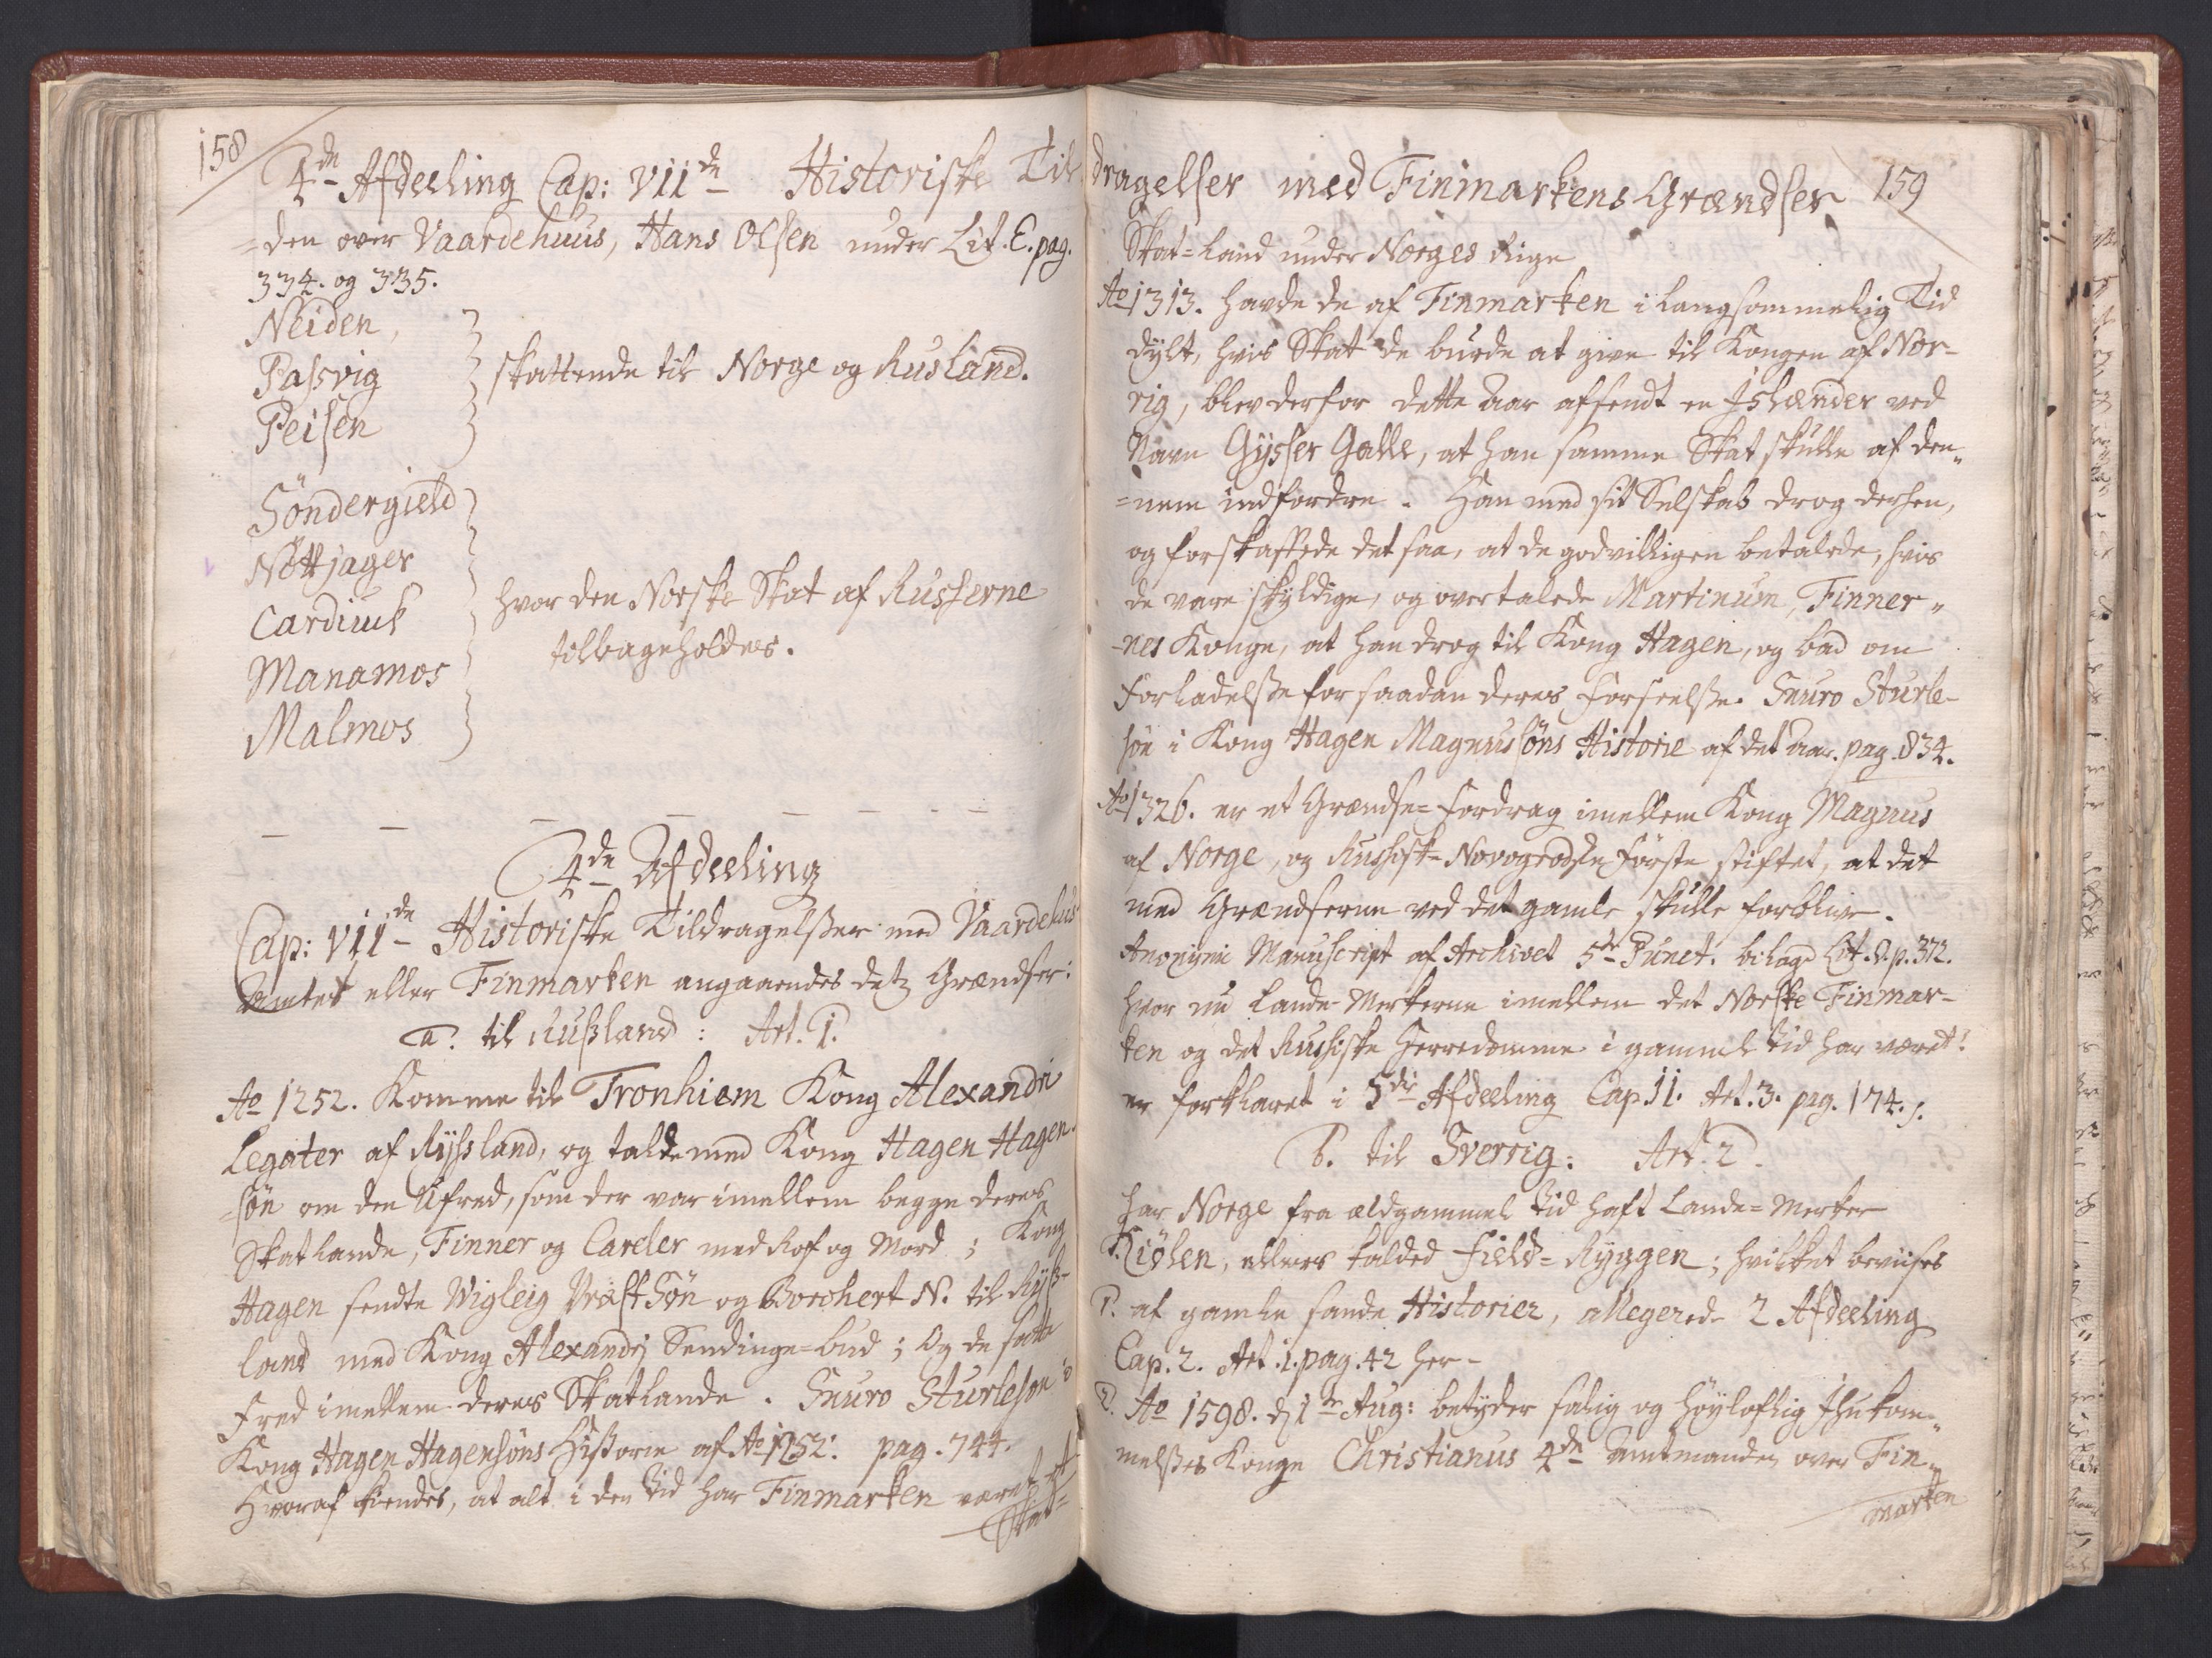 158
4de Afdeeling Cap: VIIde Historiske Til
=den over Vaardehuus, Hans Olsen under Lit. E. pag.
334. og 335.
Neiden,
Passvig
Peisen
skattende til Norge og Rusland.
Söndergield
Nöttjager
Cardiuck
Manamos
Malmos
hvor den Norske Skat af Russerne
tilbageholdes.
4de Afdeeling
Cap: VIIde Historiske Tildragelsser med Vaardehus
Amtet eller Finmarken angaaendes detz Grændser:
a. til Russland: Art. 1.
Ao 1252. Komme til Tronhiem Kong Alexandri
Legater af Ryssland, og talde med Kong Hagen Hagen
=søn om den Ufred, som der var imellem begge deres
Skatlande, Finner og Careler med Rof og Mord; Kong
Hagen sendte Wigleig Præstsøn og Borchert N. til Ryss-
land med Kong Alexandrj Sendinge=bud; Og de satte
Fred imellem deres Skatlande. Snuro Sturleson i
Kong Hagen Hagensøns Historie af Ao 1252. pag. 744.
Hvoraf kiendes, at alt i den tid har Finmarken været et
Skat=
dragelser med Finmarkens Grændser 159
Skat=land under Norges Rige
Ao 1313. havde de af Finmarken i langsommelig Tid
dylt, hvis Skat de burde at give til Kongen af Nor-
rig, blev derfor dette Aar afsendt en Islænder ved
Navn Gysser Galle, at han samme Skat skulle af den„
=nem indfordre. Han med sit Selskab drog derhen,
og forskaffede det saa, at de godvilligen betalede, hvis
de vare skyldige, og overtalede Martinum, Finner„
-nes Konge, at han drog til Kong Hagen, og bad om
Forladelsse for saadan deres Forseelsse. Snuro Sturle-
søn i Kong Hagen Magnussöns Historie af det Aar. pag. 834.
Ao 1326. er et Grændse=Fordrag imellem Kong Magnus
af Norge, og Russiske Novogrodske Förste stiftet, at det
med Grændserne ved det gamle skulle forblive.
Anonymi Manuscript af Archivet 5te Punct. bilage Lit. D. p. 372.
hvor nu Lande-Merkerne imellem det Norske Finmar-
ken og det Russiske Herredømme i gammel tid har været!
er forklaret i 5die Afdeeling Cap 11. Art. 3. pag. 174. s.
b. til Sverrig: Art. 2.
har Norge fra ældgammel tid haft Lande=Merker
Kiølen, ellers kalded Field=Ryggen; hvilket beviises
1. af gamle sande Historier, allegerede 2 Afdeeling
Cap. 2. Art. 1. pag. 42 her-
2. Ao 1598. d 1te Aug: betyder salig og höyloflig Ihukom„
melsses Konge Christianus 4de Amtmanden over Fin„
marken